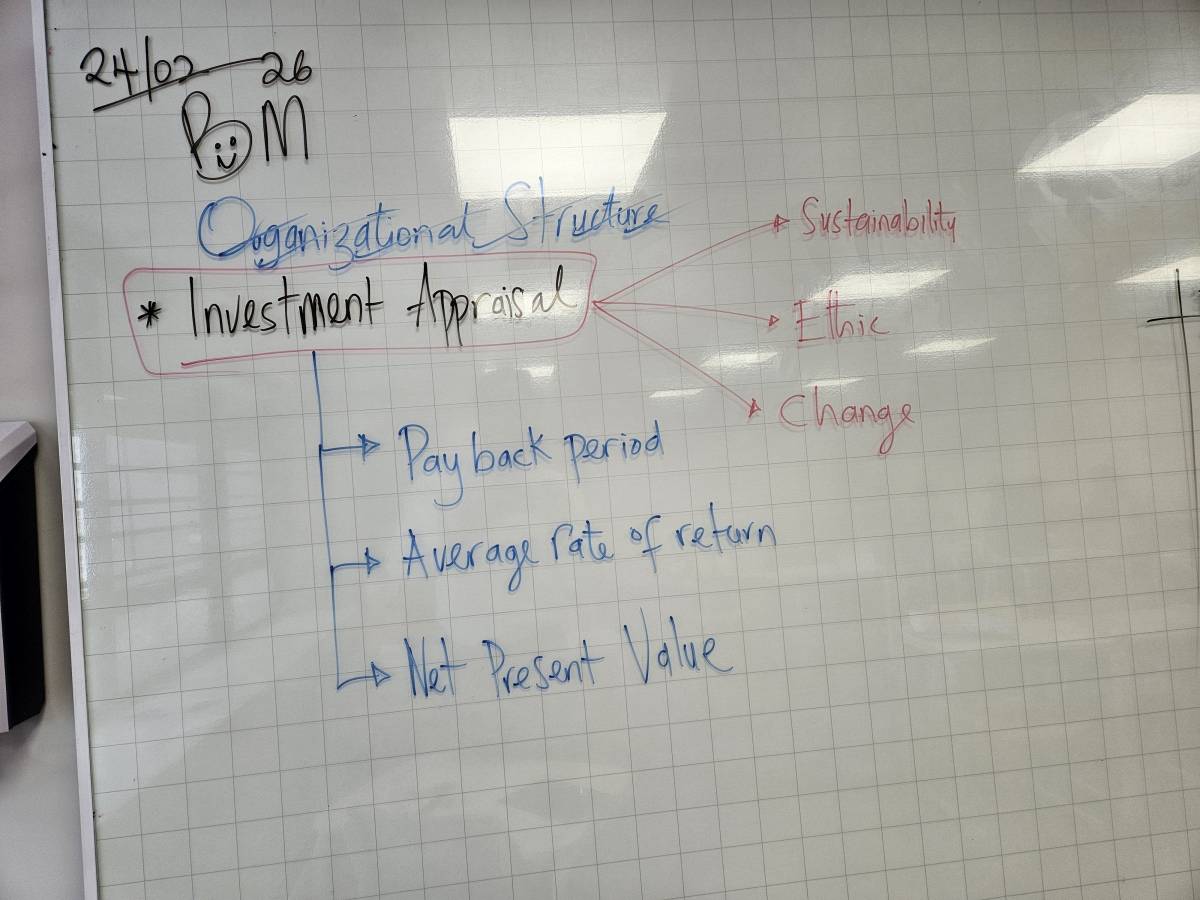 24/02 26
B M
Organizational Structure
* Investment Appraisal
Sustainability
Ethic
Change
Payback period
Average rate of return
Net Present Value